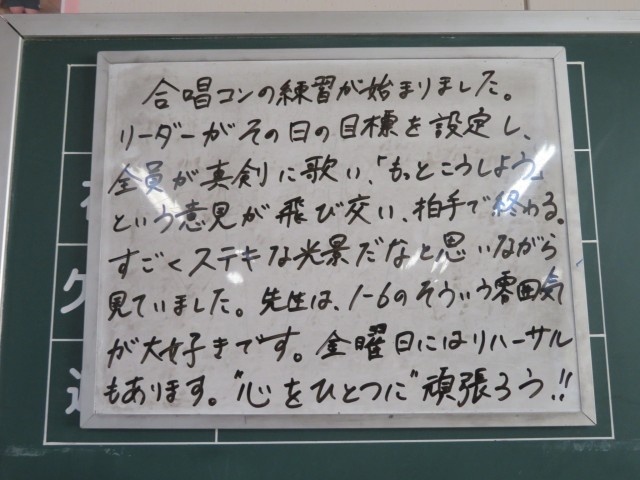 合唱コンの練習が始まりました。
リーダーがその日の目標を設定し、
全員が真剣に歌い、「もっとこうしよう」
という意見が飛び交い、拍手で終わる。
すごくステキな光景だなと思いながら
見ていました。先生は、1-6のそういう雰囲気
が大好きです。金曜日にはリハーサル
もあります。"心をひとつに"頑張ろう!!